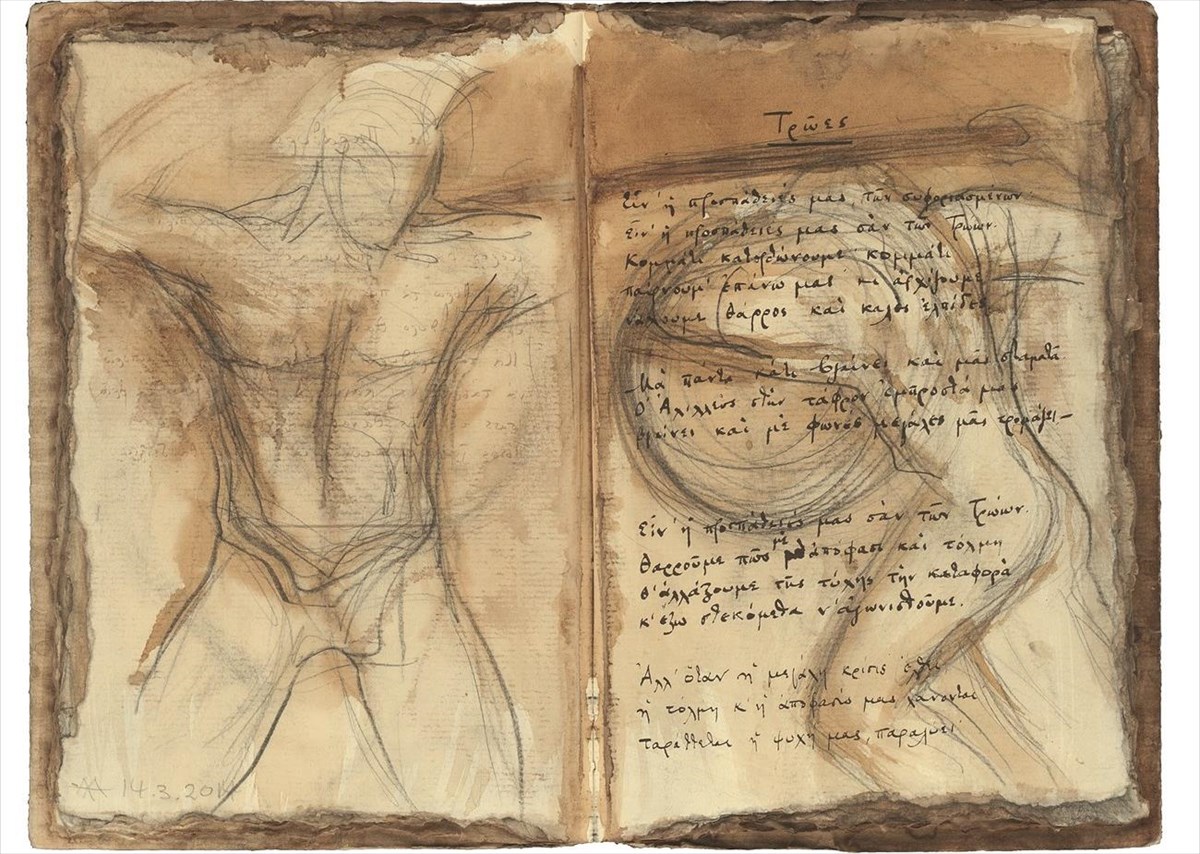 Τρῶες
Εἶν' ἡ προσπάθειές μας, τῶν συφοριασμένων·
Εἶν' ἡ προσπάθειες μας σὰν τῶν Τρώων.
Κομμάτι κατορθώνουμε· κομμάτι
παίρνουμ' ἐπάνω μας· κι ἀρχίζουμε
νἄχουμε θάρρος καὶ καλὲς ἐλπίδες
-Μὰ πάντα κάτι βγαίνει καὶ μᾶς σταματᾶ.
Ὁ Ἀχιλλεὺς στὴν τάφρον ἐμπροστά μας
βγαίνει καὶ μὲ φωνὲς μεγάλες μᾶς τρομάζει-
Εἶν' ἡ προσπάθειές μας σὰν τῶν Τρώων.
Θαρροῦμε πῶς μὲ ἀπόφασι καὶ τόλμη
θ' ἀλλάξουμε τῆς τύχης τὴν καταφορὰ
κ' ἔξω στεκόμεθα ν' ἀγωνισθοῦμε.
Ἀλλ' ὅταν ἡ μεγάλη κρίσις ἔλθει
ἡ τόλμη κ' ἡ ἀπόφασίς μας χάνονται
ταράττεται ἡ ψυχή μας, παραλύει
14.3.201